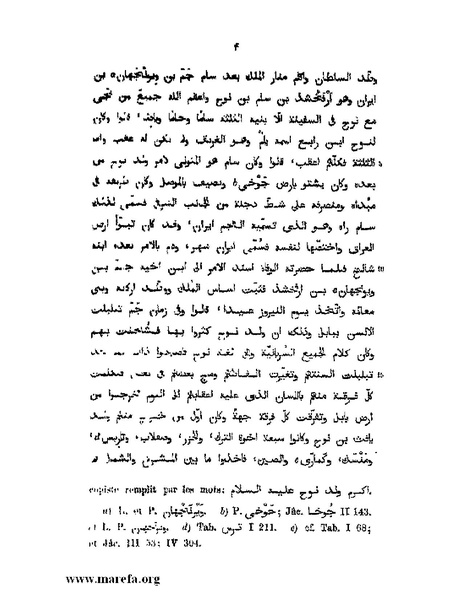 ۴
وطد السلطان واقام منار الملك بعد سام جم بن ويونجهان بن
ايران وهو ارفخشد بن سام بن نوح واعقم الله جميع من نجى
مع نوح فى السفينة الا بنيه الثلثة سامًا وحامًا ويافث، قالوا وكان
لنوح ابن رابع اسمه يام وهو الغريق ولم يكن له عقب واما
الثلثة فكلهم اعقب، قالوا وكان سام هو المتولى لامر ولد نوح من
بعده وكان يشتو بارض جوخى ويصيف بالموصل وكان طريقه فى
مبداه ومنصرفه على شط دجلة من الجانب الشرقى فسمى لذلك
سام راه وهو الذى تسميه العجم ايران، وقد كان تبوّأ ارض
العراق واختصها لنفسه فسُمّى ايران شهر، وقام بالامر بعده ابنه
شالخ فلما حضرته الوفاة اسند الامر الى ابن اخيه جم بن
ويونجهان بن ارفخشد فثبّت اساس الملك ووطد اركانه وبنى
معالمه واتّخذ يوم النيروز عيدا، قالوا وفى زمان جمّ تبلبلت
الالسن ببابل وذلك ان ولد نوح كثروا بها فشُحنت بهم
وكان كلام الجميع السُّريانيّة وهى لغة نوح فاصبحوا ذات يوم وقد
تبلبلت السنتهم وتغيّرت الفاظهم وماج بعضهم فى بعض فتكلمت
كل فرقة منهم باللسان الذى عليه اعقابهم الى اليوم فخرجوا من
ارض بابل وتفرقت كل فرقة جهةً وكان اوّل من خرج منهم ولد
يافث بن نوح وكانوا سبعة اخوة الترك، والخزر، وصقلاب، وتاريس،
ومَنْسَك، وكمارى، والصين، فاخذوا ما بين المشرق والشمال
copiste remplit par les mots: اكثرم ولد نوح عليه السلام.
a) L. et P. ويرنجهان. b) P. حَوْخى; Jâc. جُوخَا II 143.
c) L. P. ويرنجهون. d) Tab. ترس I 211. e) cf. Tab. I 68;
et Jâc. III 53; IV 304.
www.marefa.org